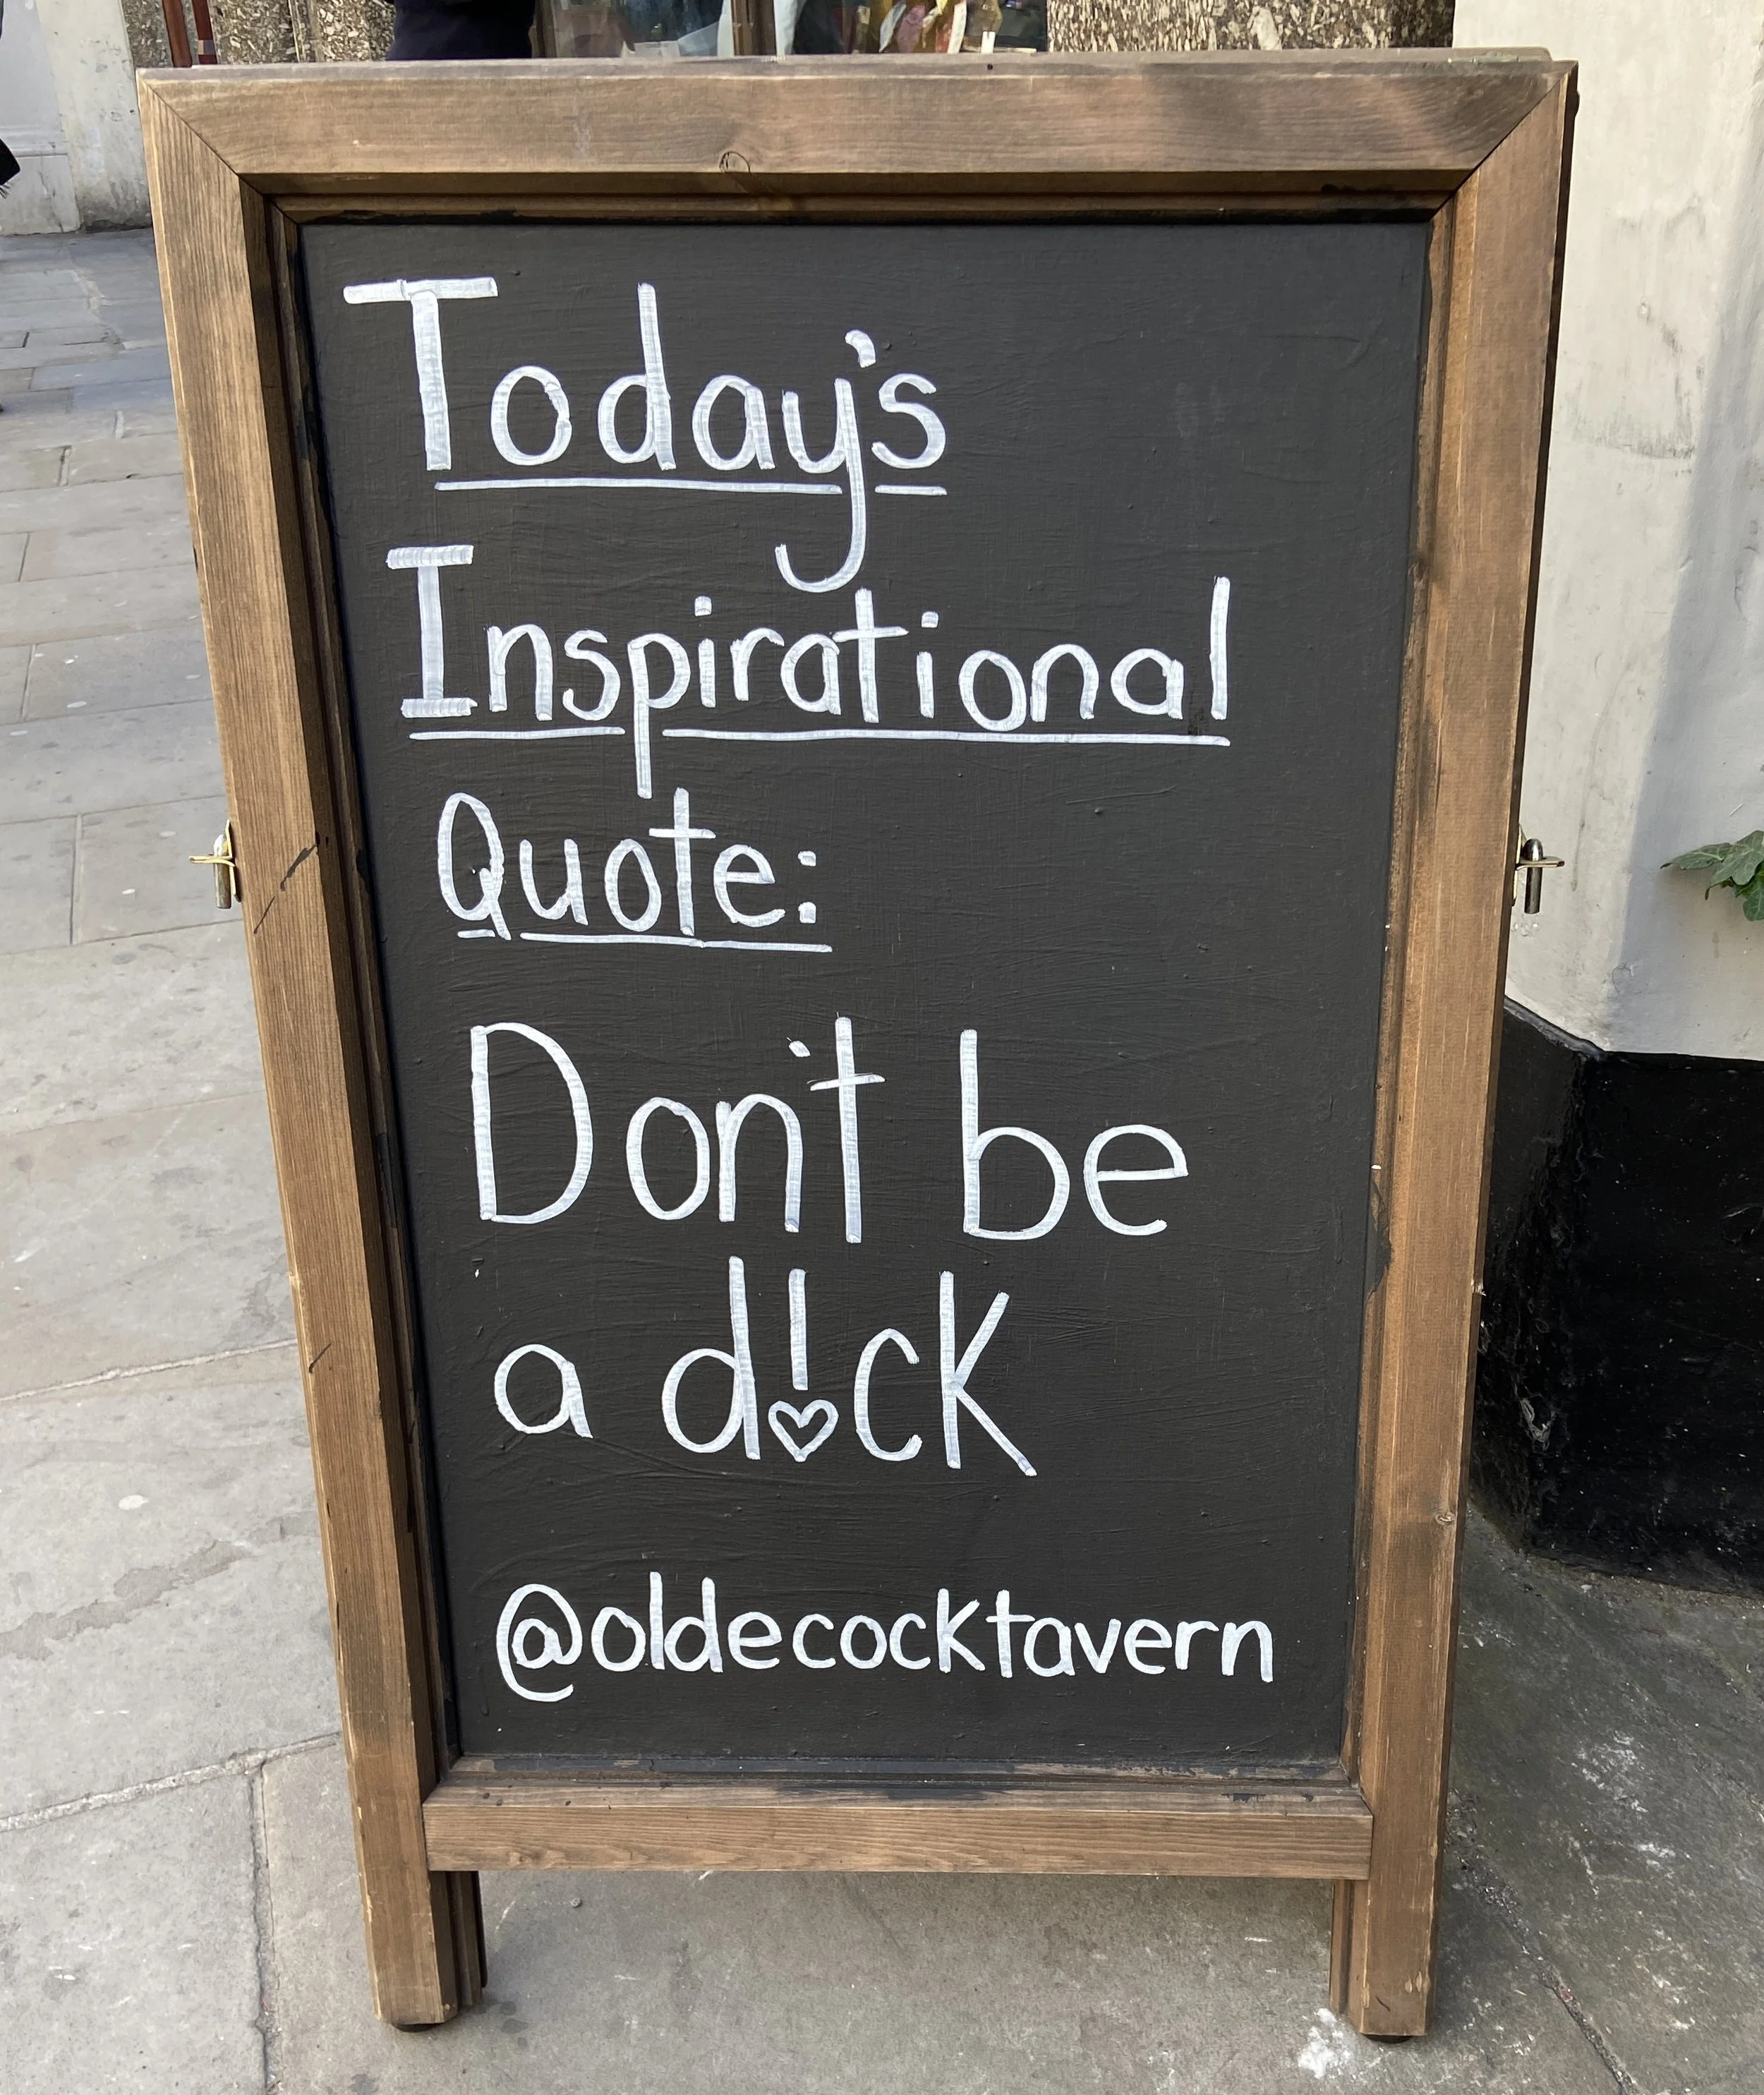 Today's
Inspirational
Quote:
Don't be
a d!ck
@oldecocktavern